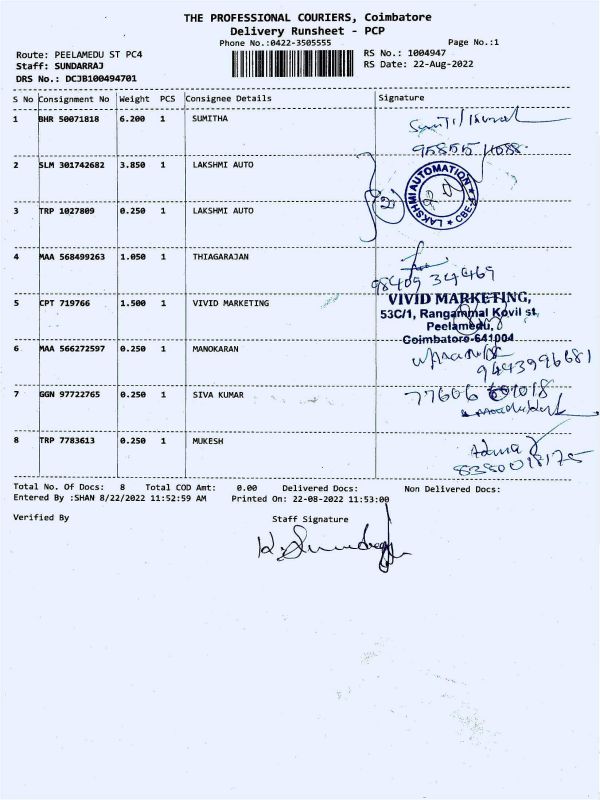 THE PROFESSIONAL COURIERS, Coimbatore
Delivery Runsheet - PCP
Phone No.:0422-3505555
Page No.:1
Route: PEELAMEDU ST PC4
RS No.: 1004947
Staff: SUNDARRAJ
RS Date: 22-Aug-2022
DRS No.: DCJB100494701
S No Consignment No Weight PCS Consignee Details Signature
1 BHR 50071818 6.200 1 SUMITHA
2 SLM 301742682 3.850 1 LAKSHMI AUTO
LAKSHMI AUTOMATION
CBE
3 TRP 1027809 0.250 1 LAKSHMI AUTO
4 MAA 568499263 1.050 1 THIAGARAJAN
98409 34469
5 CPT 719766 1.500 1 VIVID MARKETING
VIVID MARKETING,
53C/1, Rangammal Kovil st,
Peelamedu,
Coimbatore-641004
6 MAA 566272597 0.250 1 MANOKARAN
9443996681
7 GGN 97722765 0.250 1 SIVA KUMAR
8 TRP 7783613 0.250 1 MUKESH
Total No. Of Docs: 8 Total COD Amt: 0.00 Delivered Docs: Non Delivered Docs:
Entered By :SHAN 8/22/2022 11:52:59 AM Printed On: 22-08-2022 11:53:00
Verified By
Staff Signature